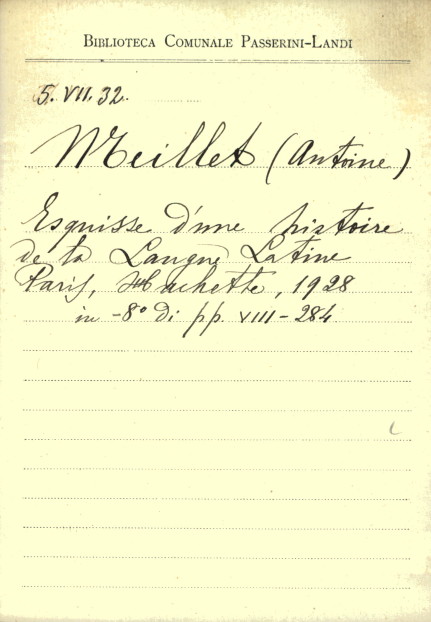 BIBLIOTECA COMUNALE PASSERINI-LANDI
5. VII. 32.
Meillet (Antoine)
Esquisse d'une histoire
de la Langue Latine
Paris, Hachette, 1928
in -8° di pp. VIII - 284